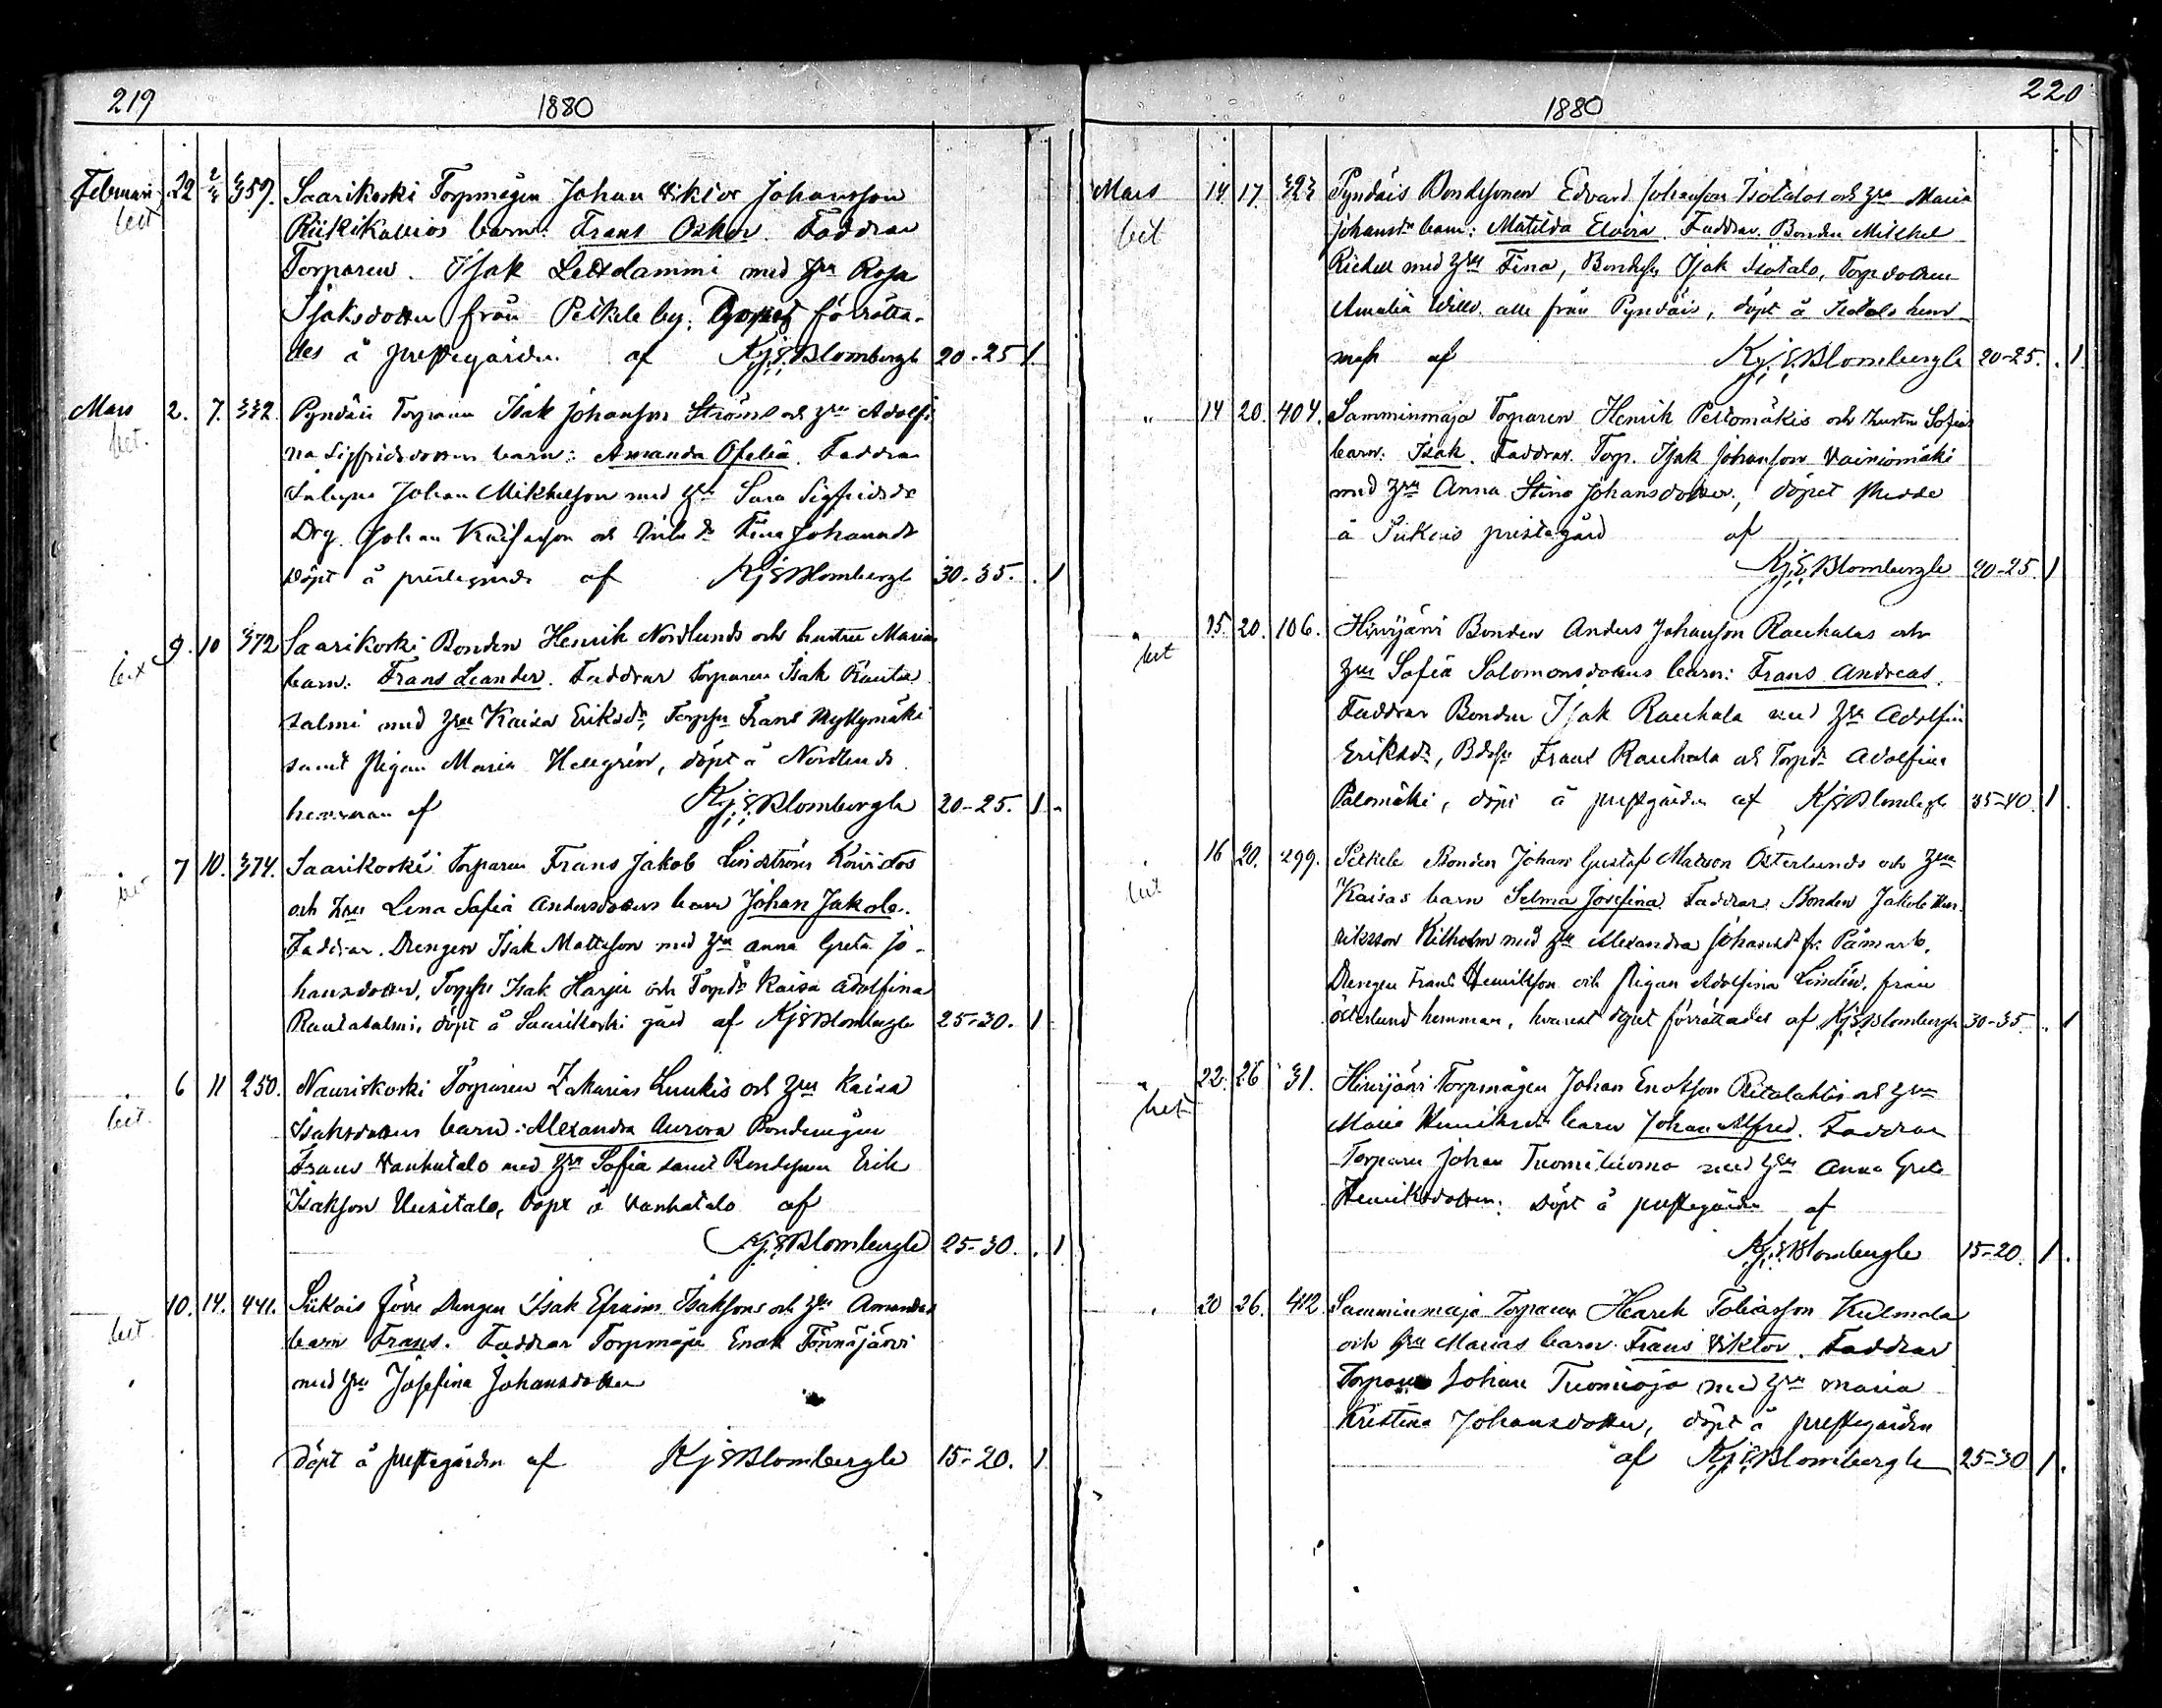 219
1880
Februari 22 2/3 359. Saarikoski Torpmågen Johan Viktor Johansson
bet Riikikallios barn: Frans Oskar. Faddrar
Torparen Isak Lettdammi med hru Rosa
Isaksdotter från Peikele by. Dopet förrätta-
des å prestegården af Kj. E. Blombergh 20-25 1.
Mars 2. 7. 332. Pyndäis Torparen Isak Johansson Ströms och hru Adolfi
bet. na Sigfridsdotters barn: Amanda Ofelia. Faddrar
Johan Mikkelson med hru Sara Sigfridsdr
Drg. Johan och Fina Johansdr
döpt å af Kj E Blombergh 30-35. . 1
bet 9. 10 372 Saarikoski Bonden Henrik Nordlunds och hustru Marias
barn: Frans Leander. Faddrar Torparen Isak Rauta
salmi med hru Kaisa Eriksdr, Torpsn Frans Myllymäki
samt pigan Maria Hellgrén, döpt å Nordlunds
hemman af Kj. E. Blombergh 20-25. 1.
bet 7 10. 374. Saarikoski Torparen Frans Jakob Lindströms Koivistos
och hru Lena Sofia Andersdotters barn Johan Jakob.
Faddrar. Drengen Isak Mattsson med hru Anna Greta Jo-
hansdotter, Torpsn Isak Harju och Torpdr Kaisa Adolfina
Rautasalmi, döpt å Saarikoski gård af Kj E Blombergh 25-30. 1
bet. 6 11 250. Nauriskoski Torparen Zakarias Luukis och hru Kaisa
Isaksdotters barn: Alexandra Aurora Bondmågen
Frans Vanhatalo med hru Sofia samt Bondsonen Erik
Isaksson Uusitalo, döpt å Vanhatalo af
Kj. E. Blombergh 25-30. . 1
bet 10. 14. 441. Siikais före Drengen Isak Efraim Isaksons och hru Amandas
barn Frans. Faddrar Torpmågen Enok Tönnäjärvi
med hru Josefina Johansdotter
döpt å prestegården af Kj E Blombergh 15-20. 1
220
1880
Mars 14 17. 323 Pyndäis Bondsonen Edvard Johansson Isotalos och hru Maria
bet Johansdrs barn: Matilda Elvira. Faddrar. Bonden Mickel
Rickell med hru Fina, Bondesn Isak Isotalo, Torpdottren
Amalia alla från Pyndäis, döpt å Isotalo hem-
man af Kj. E. Blombergh 20-25. . 1
" 14 20. 404. Samminmaja Torparen Henrik Peltomäkis och hustru Sofias
barn: Isak. Faddrar. Torp. Isak Johansson Vainiomäki
med hru Anna Stina Johansdotter, döpet skedde
å Siikais prestegård af
Kj. E. Blombergh 20-25. 1
" 15. 20. 106. Hirvijärvi Bonden Anders Johansson Rauhalas och
bet hru Sofia Salomonsdotters barn: Frans Andreas.
Faddrar Bonden Isak Rauhala med hru Adolfina
Eriksdr, Bdesn Frans Rauhala och Torpdr Adolfina
Palomäki, döpt å prestgården af Kj E Blombergh 35-40. 1.
bet 16 20. 299. Peikele Bonden Johan Gustaf Matson Österlunds och hru
Kaisas barn Selma Josefina. Faddrar Bonden Jakob Hen-
riksson Kilholm med hru Alexandra Johansdr fr. Påmark,
Drengen Frans Henriksson och Pigan Adolfina Lindén, från
österlund hemman, hvarest dopet förrättades af Kj. E. Blombergh 30-35 . 1
" 22. 26 31. Hirvijärvi Torpmågen Johan Enoksson Ritalahtis och hru
bet Maria Henriksdrs barn Johan Alfred. Faddrar
Torparen Johan med hru Anna Greta
Henriksdotter. Döpt å prestegården af
Kj. E. Blombergh 15-20. 1.
" 20 26. 412 Samminmaja Torparen Tobiasson Kulmala
och hru Marias barn Frans Viktor. Faddrar
Torparen Johan Tuomioja med hru Maria
Kristina Johansdotter, döpt å prestegården
af Kj. E. Blombergh 25-30 1.